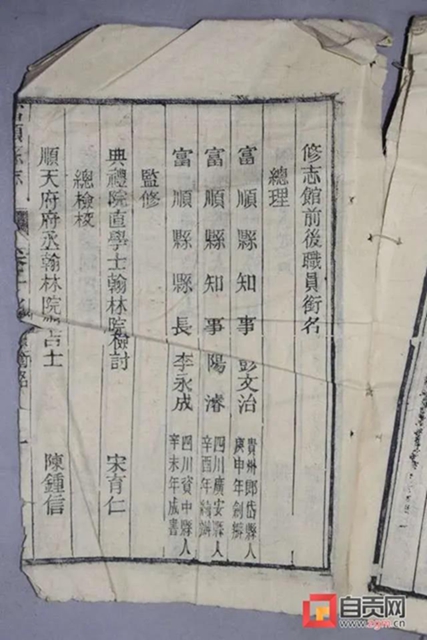 修志館前後職員銜名
總理
富順縣知事 彭文治 貴州郎岱縣人
庚申年創辦
富順縣知事 陽濬 四川廣安縣人
辛酉年
富順縣縣長 李永成 四川資中縣人
辛未年成書
監修
典禮院直學士翰林院檢討 宋育仁
總檢校
順天府府丞翰林院吉士 陳鍾信
順縣志
自贡网